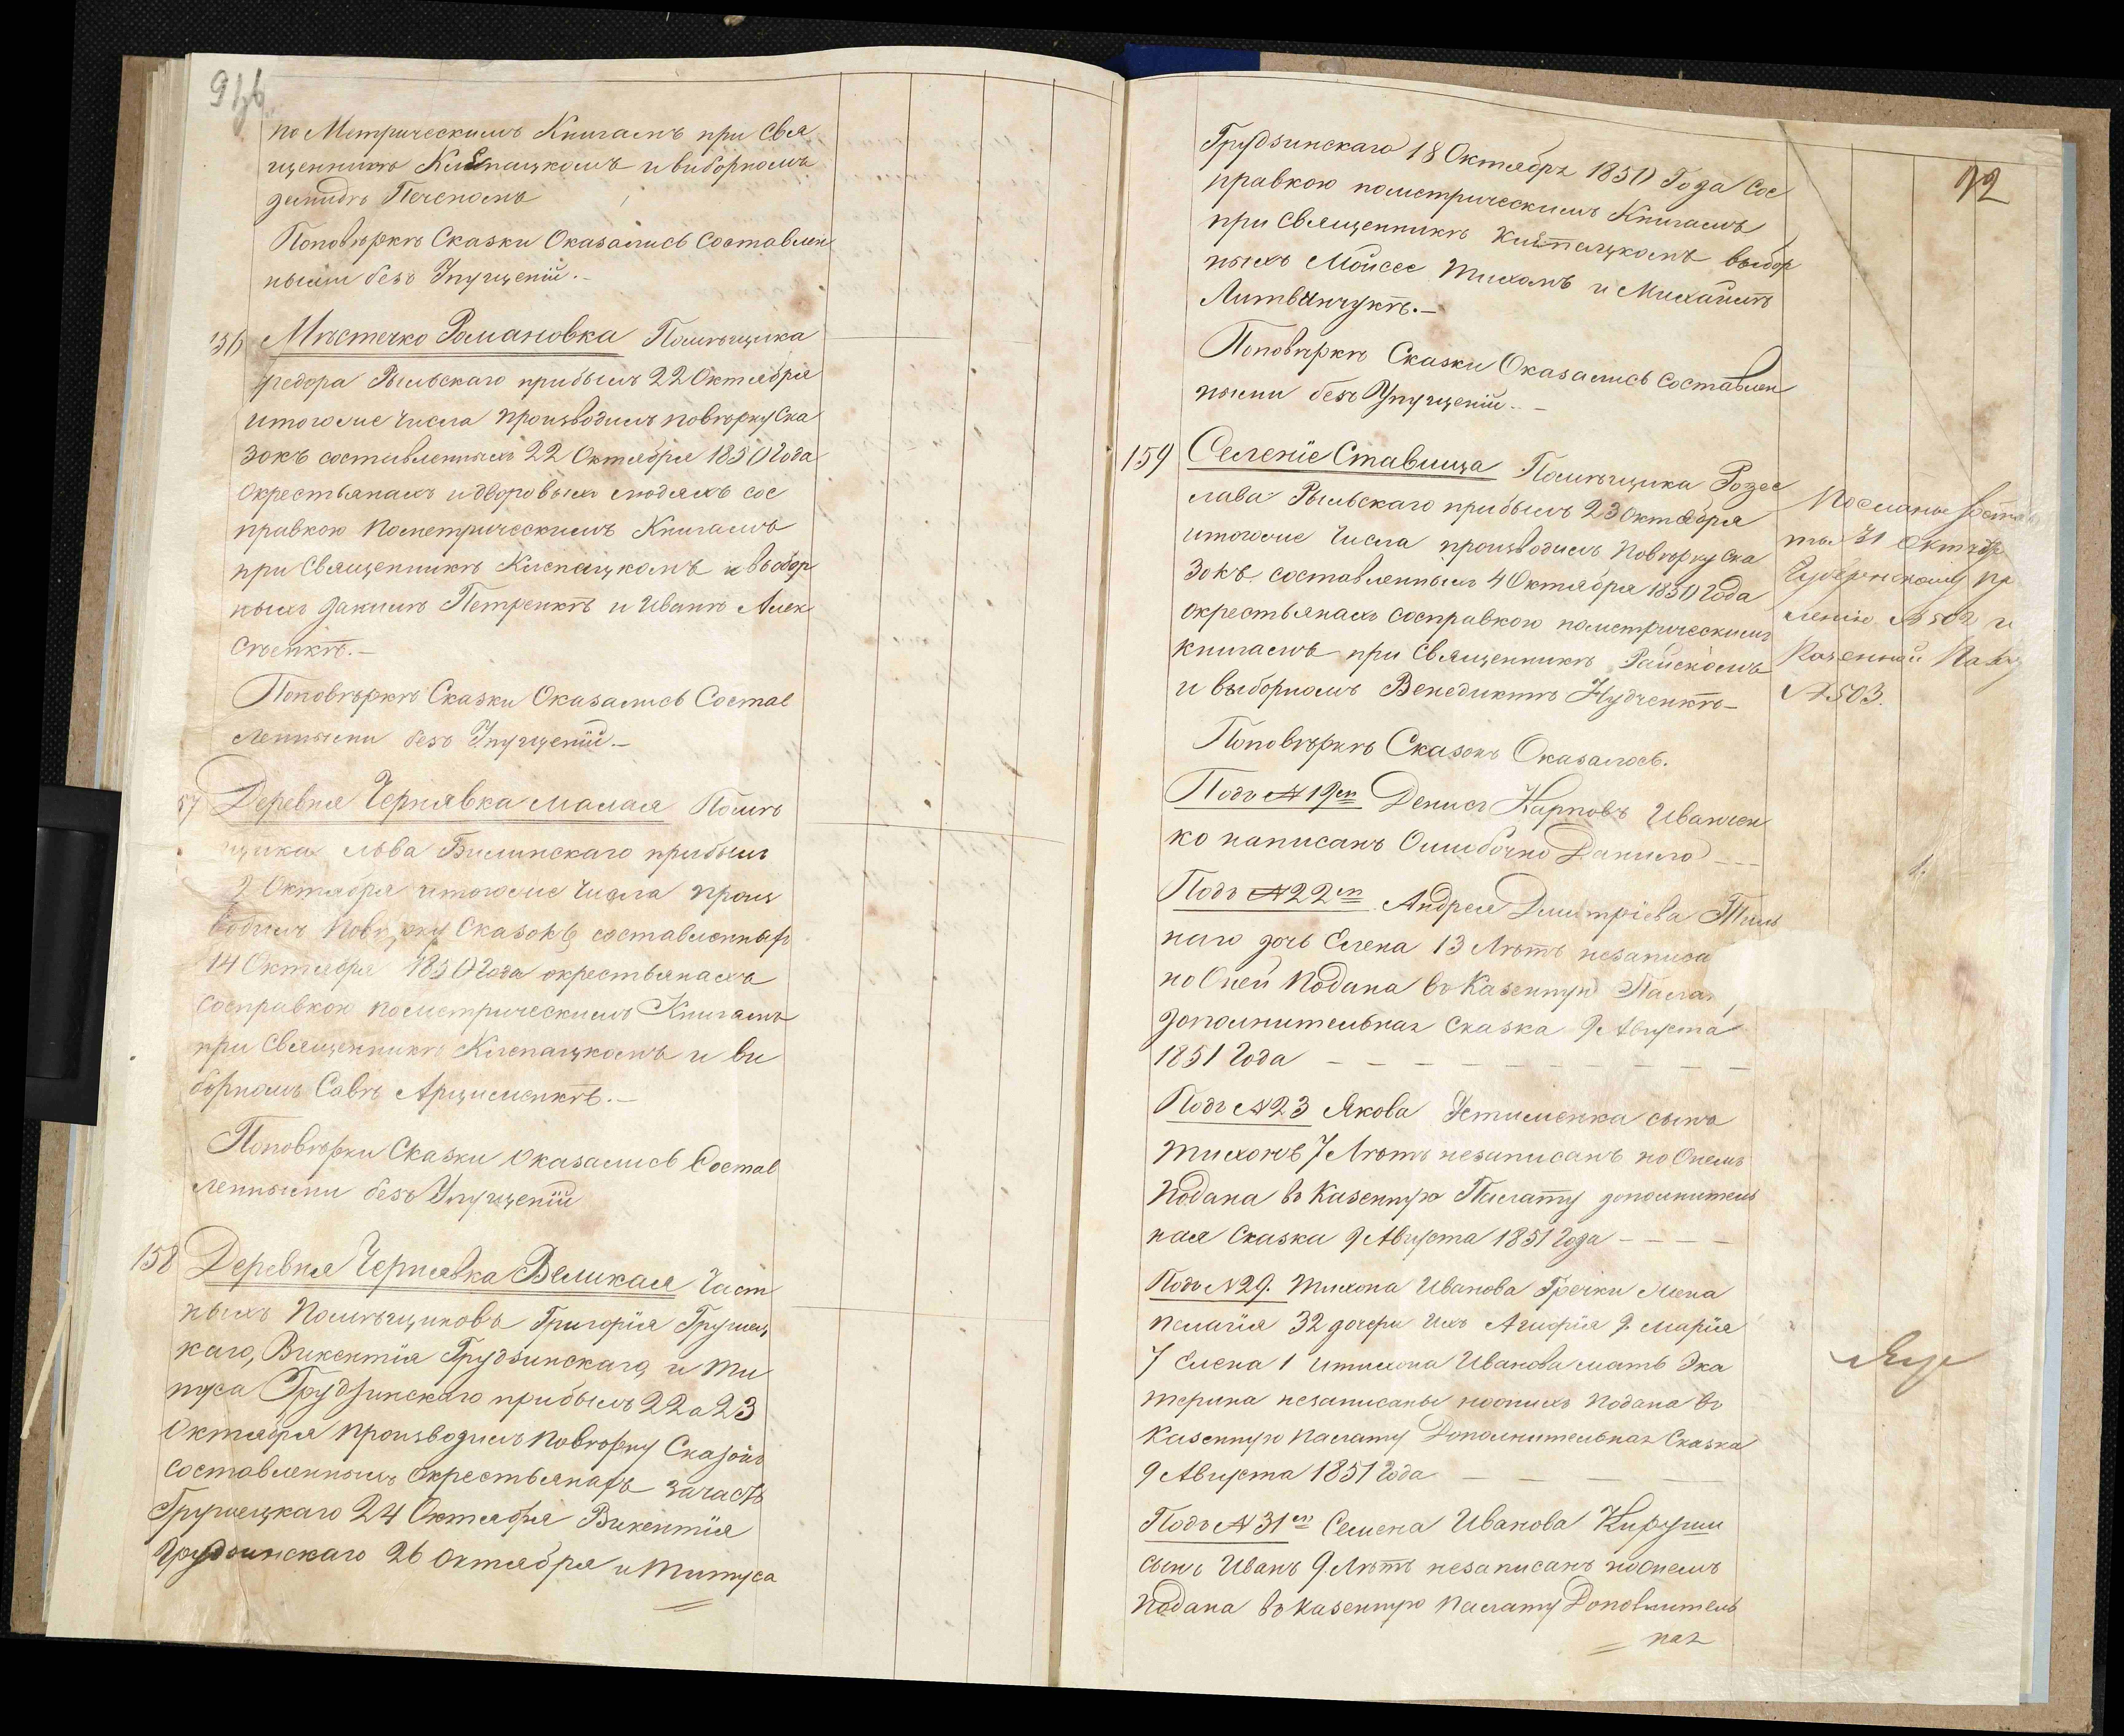 91 об.
по Метрическимъ Книгамъ при Свя
щенникѣ Киспацкомъ и виборномъ
Поповѣркѣ Сказки Оказались Составлен
ными безъ Упущеній.-
156 Мѣстечко Романовка Помѣщика
Федора Рыльскаго прибылъ 22 Октября
итогоже Числа производилъ повѣрку Ска
зокъ составленныхъ 22 Октября 1850 Года
окрестьянахъ идворовыхъ людяхъ сос
правкою пометрическимъ Книгамъ
при Священникѣ Киспацкомъ и выбор
ныхъ Якимѣ Петренкѣ и Иванѣ Алек
сѣенкѣ.-
Поповѣркѣ Сказки Оказались Состав
ленными безъ Упущеній.-
57 Деревня Чернявка малая Помѣ
щика Льва Билинскаго прибылъ
2 Октября итогоже Числа произ
водилъ Повѣрку Сказокъ составленныхъ
14 Октября 1850 Года окрестьянахъ
сосправкою пометрическимъ Книгамъ
при Священникѣ Киспацкомъ и ви
борномъ Савѣ Арцименкѣ.-
Поповѣрки Сказки Оказались Состав
ленными безъ Упущеній
158 Деревня Чернявка Великая Част
ныхъ Помѣщиковъ Григорія Грушец
каго, Викентія Грудзинскаго, и Ти
туса Грудзинскаго прибылъ 22 а 23
Октября производилъ повѣрку Сказокъ
составленныхъ окрестьянахъ зачасть
Грушецкаго 24 Октября Викентія
Грудзинскаго 26 Октября и Титуса
92
Грудзинскаго 18 Октября 1850 Года Сос
правкою пометрическимъ Книгамъ
при Священникѣ Киспацкомъ выбор
ныхъ Мойсее Тихомъ и Михайлѣ
Литвинчукѣ.-
Поповѣркѣ Сказки Оказались составлен
ными безъ Упущеній.-
159 Селеніе Ставища Помѣщика Розес
лава Рыльскаго прибылъ 23 октября
итогоже Числа производилъ Повѣрку Ска
зокъ составленныхъ 4 Октября 1850 Года
окрестьянахъ сосправкою пометрическимъ
книгамъ при Священникѣ Райскомъ
и выборномъ Венедиктѣ Нудченкѣ-
Посланы
ты 31 Октября
Губернскому Пр
ленію №502 и
Казенной Пала
№503.
Поповѣркѣ Сказокъ Оказалось.
Подъ №19ем Денисъ Карповъ Иванчен
ко написанъ Ошибочно Данило ---
1.
Подъ №22ем Андрея Дмитріева
наго дочь Елена 13 Лѣтъ незаписа
но Оней Подана въ Казенную Пала
дополнительная сказка 9 Августа
1851 Года - - - - - - - -
Подъ №23 Якова Устименка сынъ
Тихонъ 7 Лѣтъ незаписанъ но Онемъ
Подана въ Казенную Палату дополнитель
ная Сказка 9 Августа 1851 Года - - - -
Подъ №29. Тихона Иванова Гречки Жена
Пелагія 32 дочери Ихъ Агафія 9. Марія
7 Елена 1 Итихона Иванова мать Эка
терина незаписаны ноонихъ подана въ
Казенную палату Дополнительная Сказка
9 Августа 1851 Года - - -
Подъ №31ем Семена Иванова Кируши
сынъ Иванъ 9 Лѣтъ незаписанъ ноонемъ
Подана въ казенную палату Дополнитель
ная